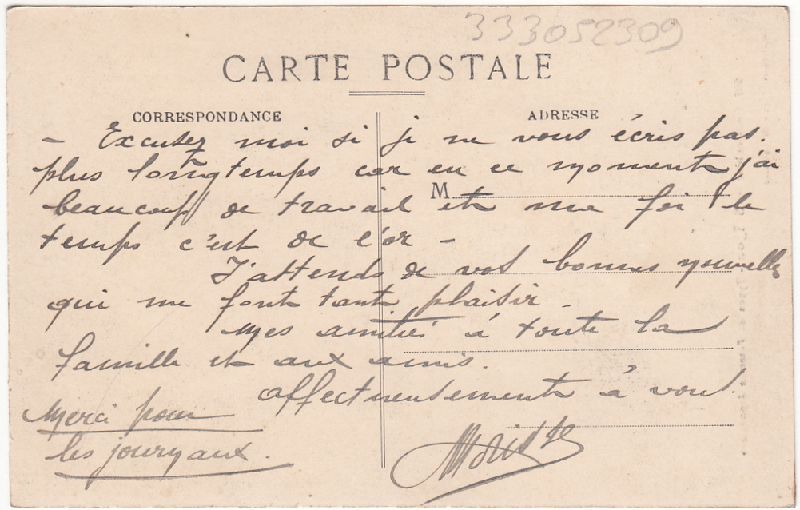 333052309
CARTE POSTALE
CORRESPONDANCE
ADRESSE
- Excusez moi si je ne vous écris pas
plus longtemps car en ce moment j'ai
M
beaucoup de travail et me foi le
temps c'est de l'or -
J'attends de vos bonnes nouvelles
qui me font tant plaisir.
Mes amitiés à toute la
famille et aux amis.
affectueusement à vous
Merci pour
les journaux.